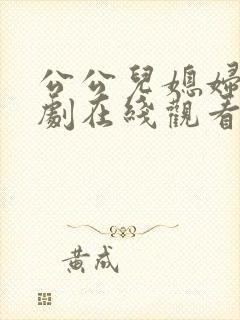 公公兒媳婦
劇在綫觀看
黃成